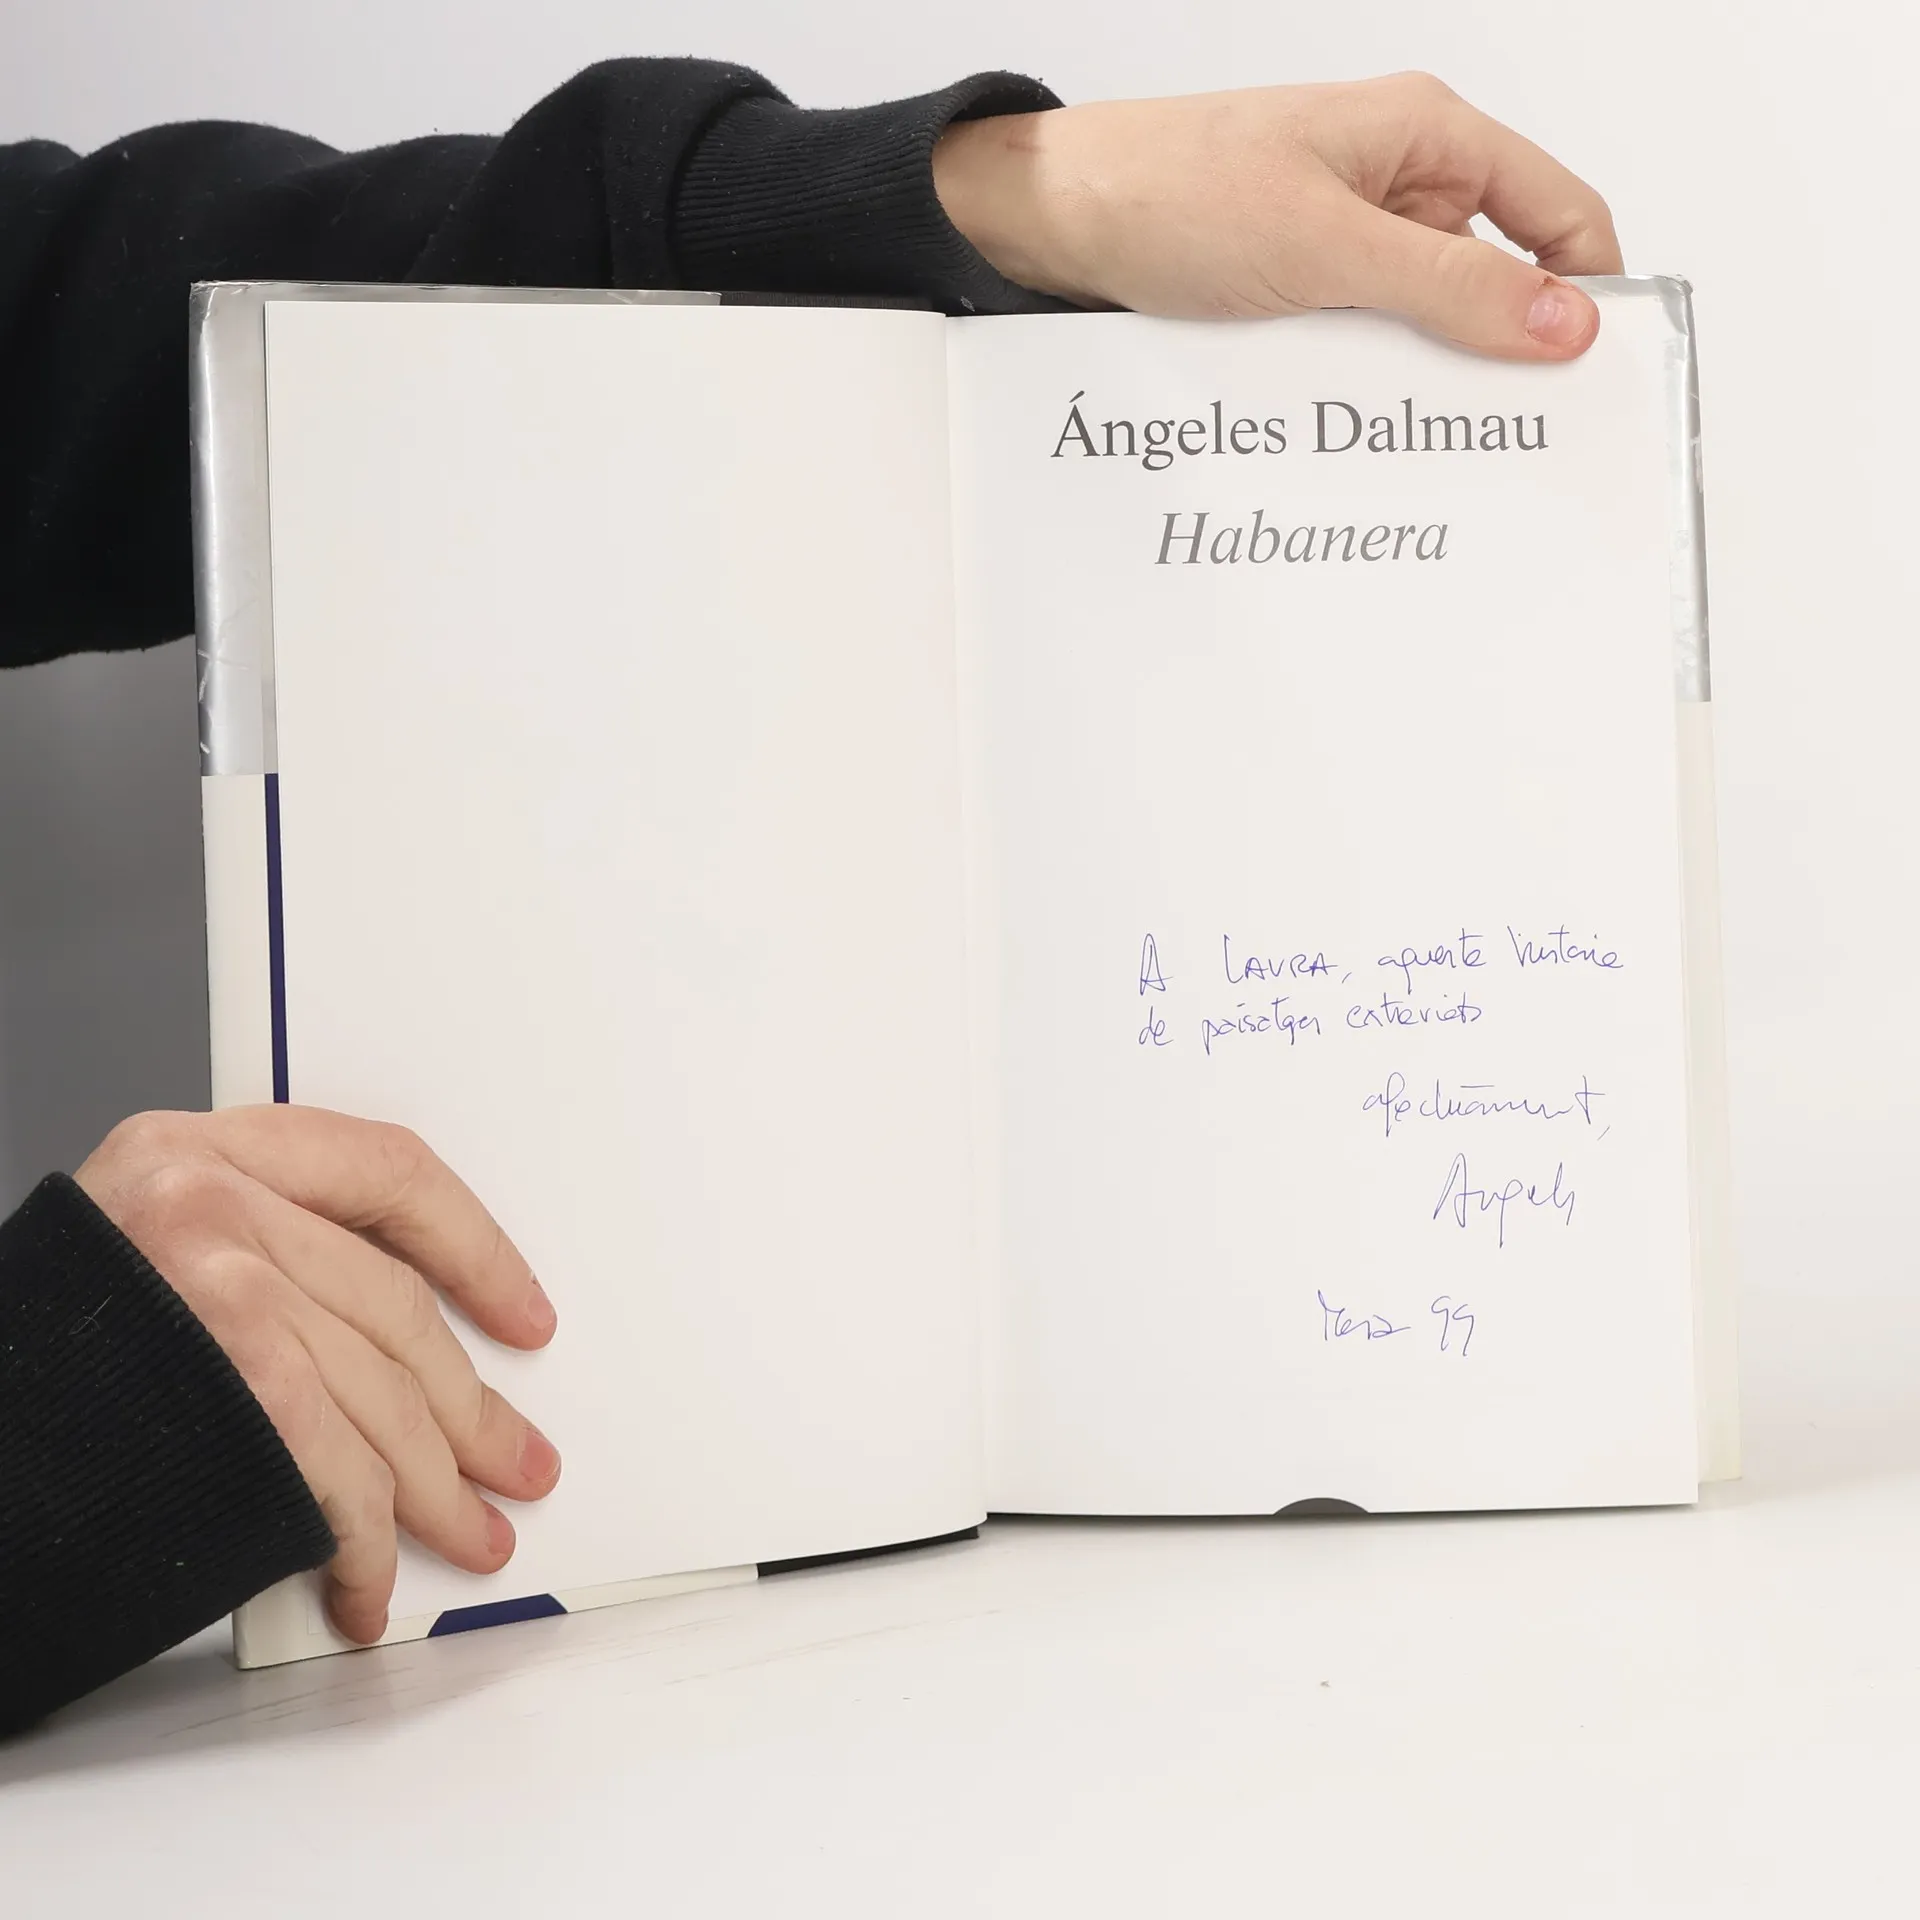 Ángeles Dalmau
Habanera
A LAURA, aquesta història
de paisatges exteriors
afectuosament,
Àngels
Març 99